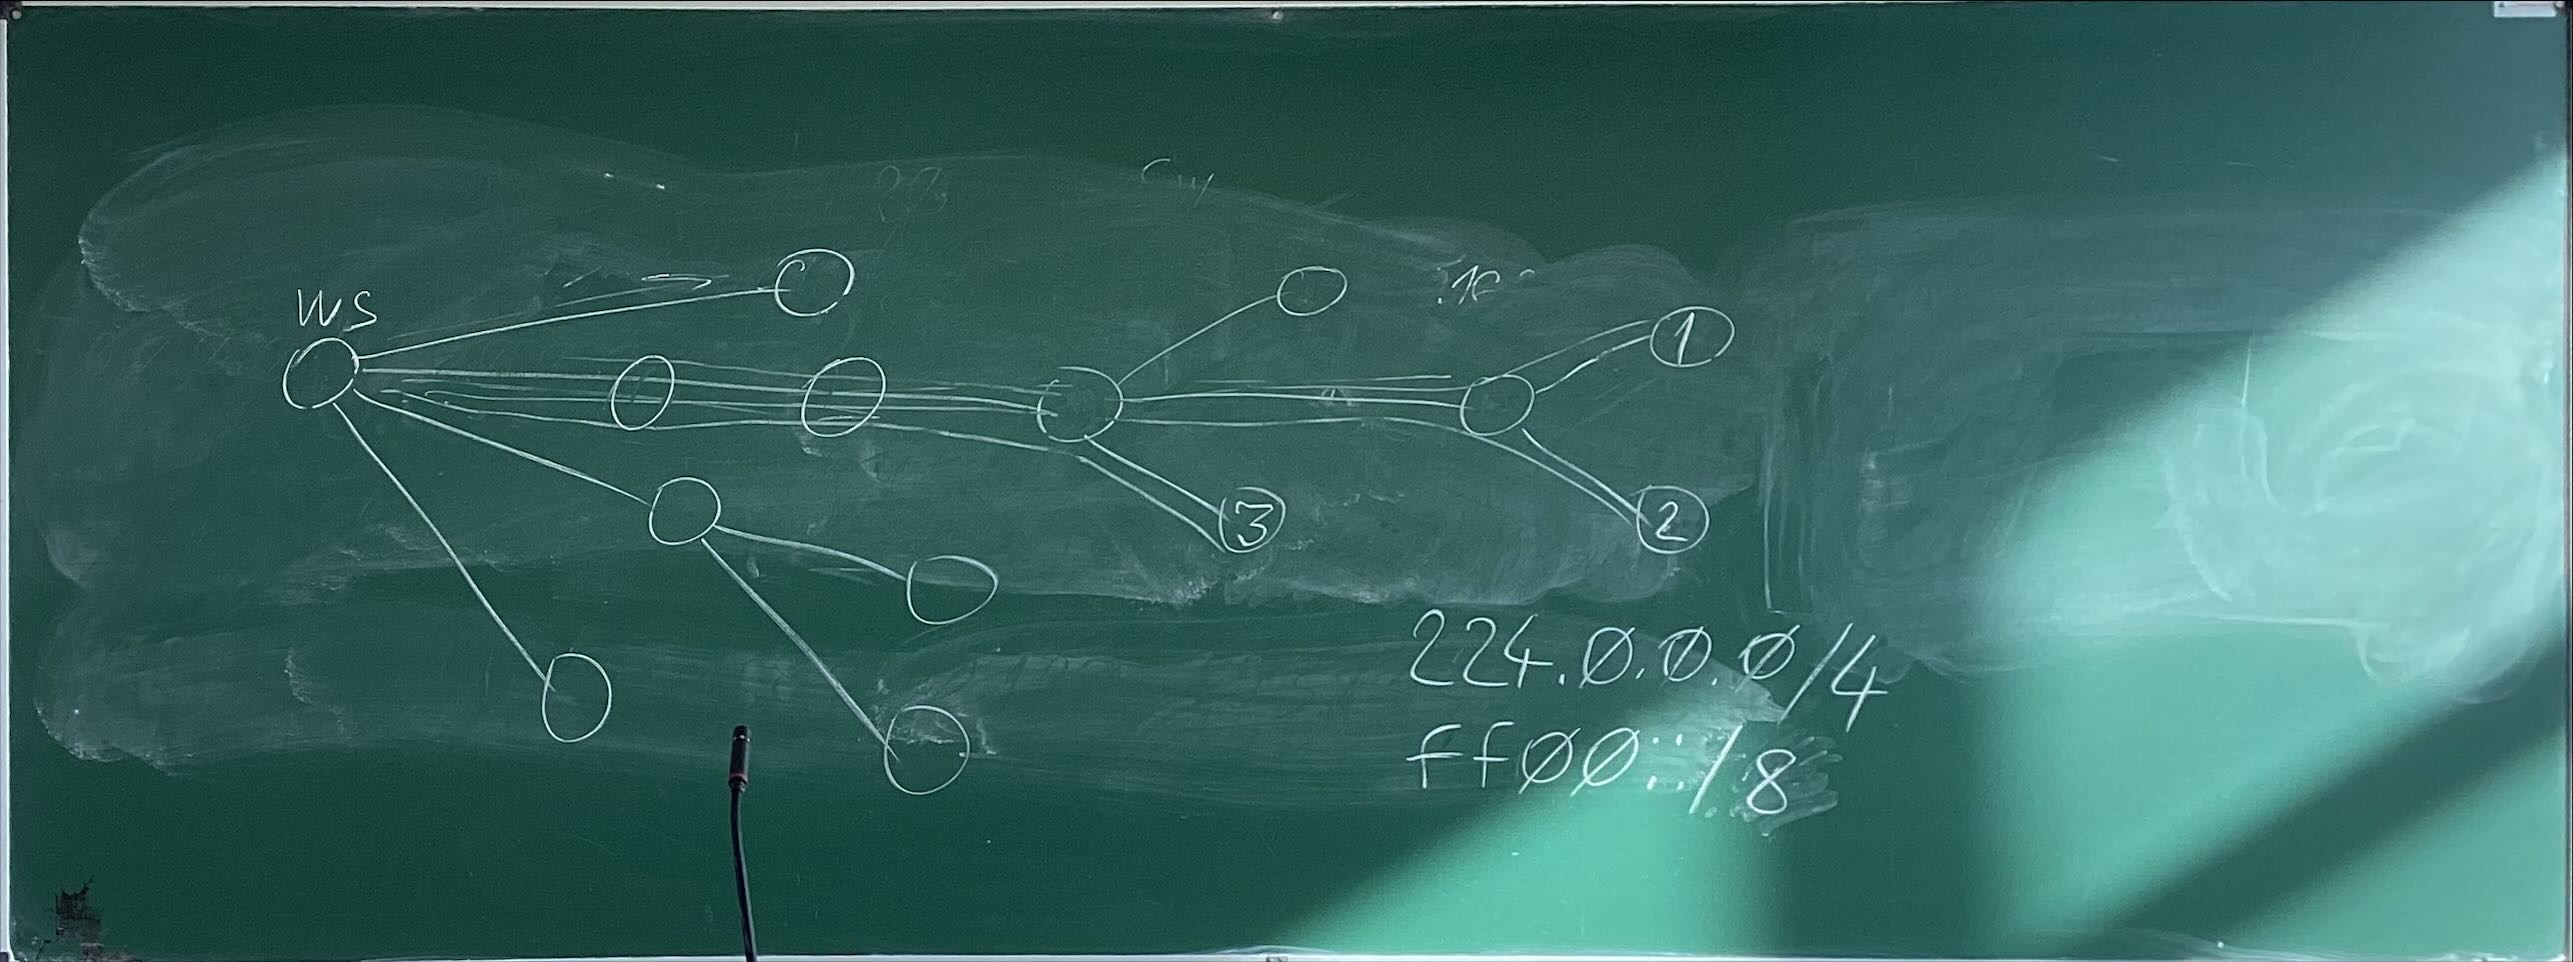 WS
1
3
2
224.0.0.0/4
ff00::/8